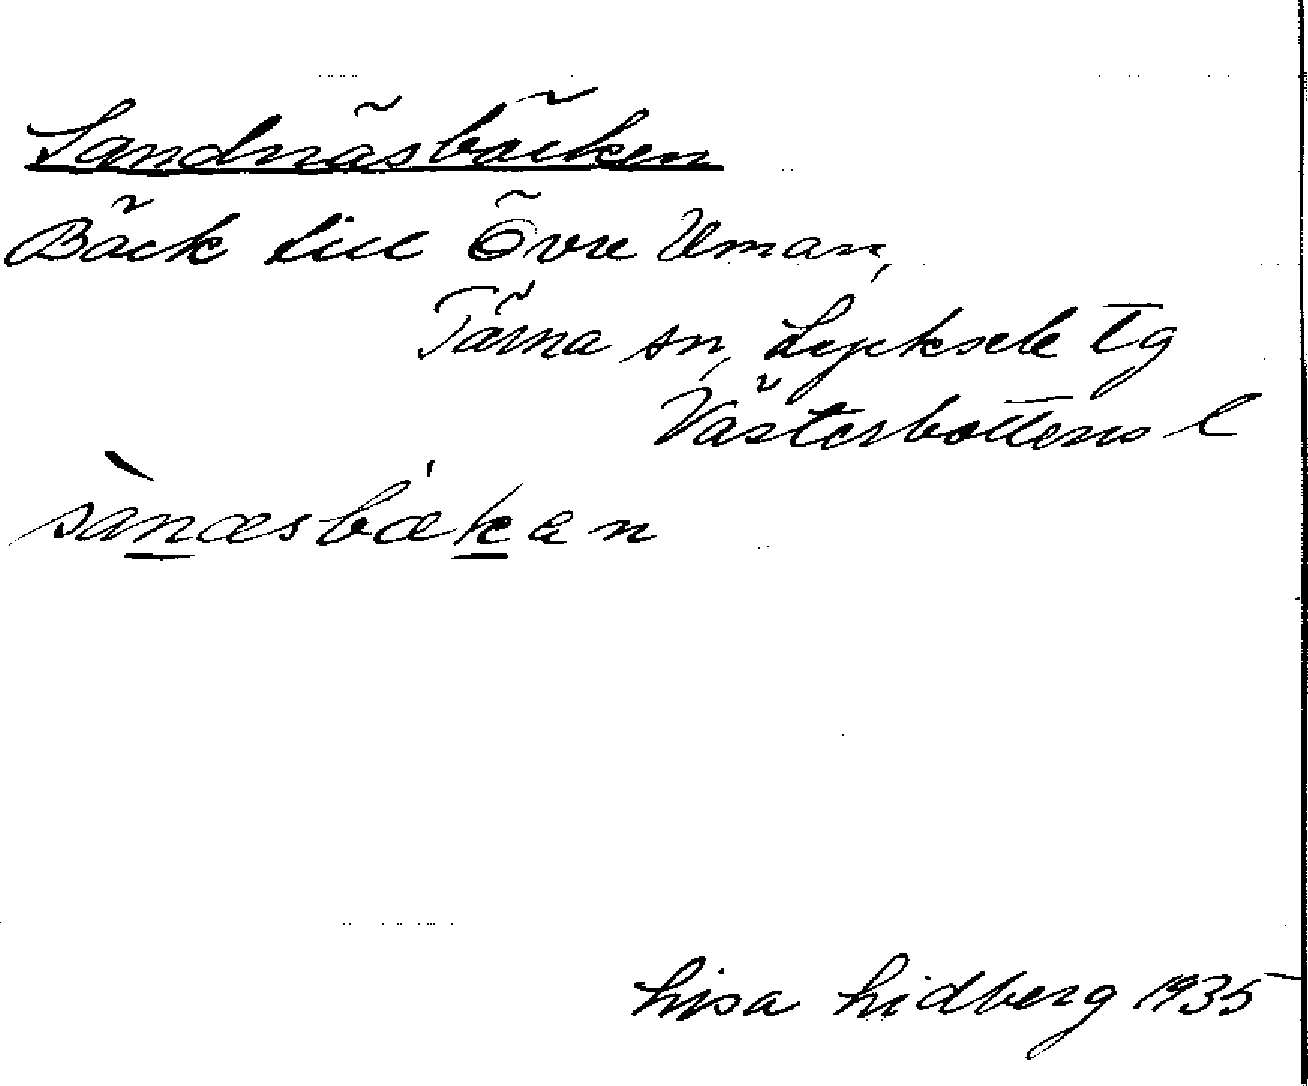 Sandnäsbäcken
Bäck till Övre Uman,
Tärna sn, Lycksele tg
Västerbottens l
sànæsbækan
Lisa Lidberg 1935